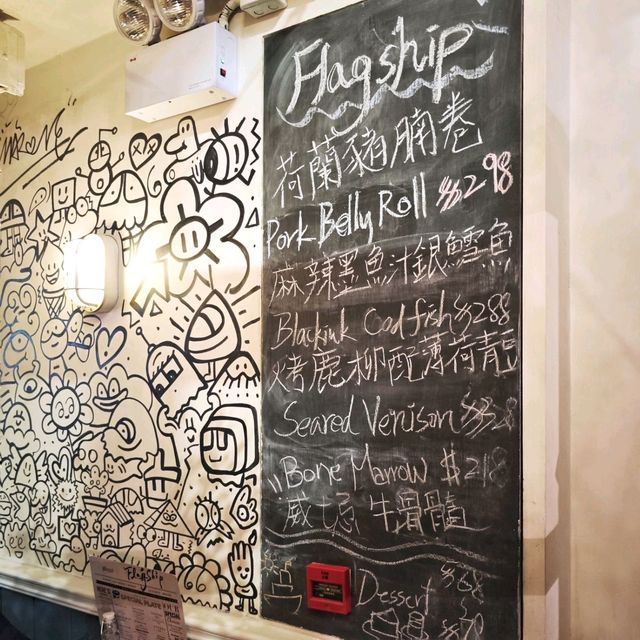 Flagship
荷蘭豬腩卷
Pork Belly Roll $298
麻辣墨魚汁銀鱈魚
Blackink Codfish $288
烤鹿柳配薄荷青豆
Seared Venison $328
Bone Marrow $218
威士忌牛骨髓
Dessert $68
Flagship
SPECIAL PLATE